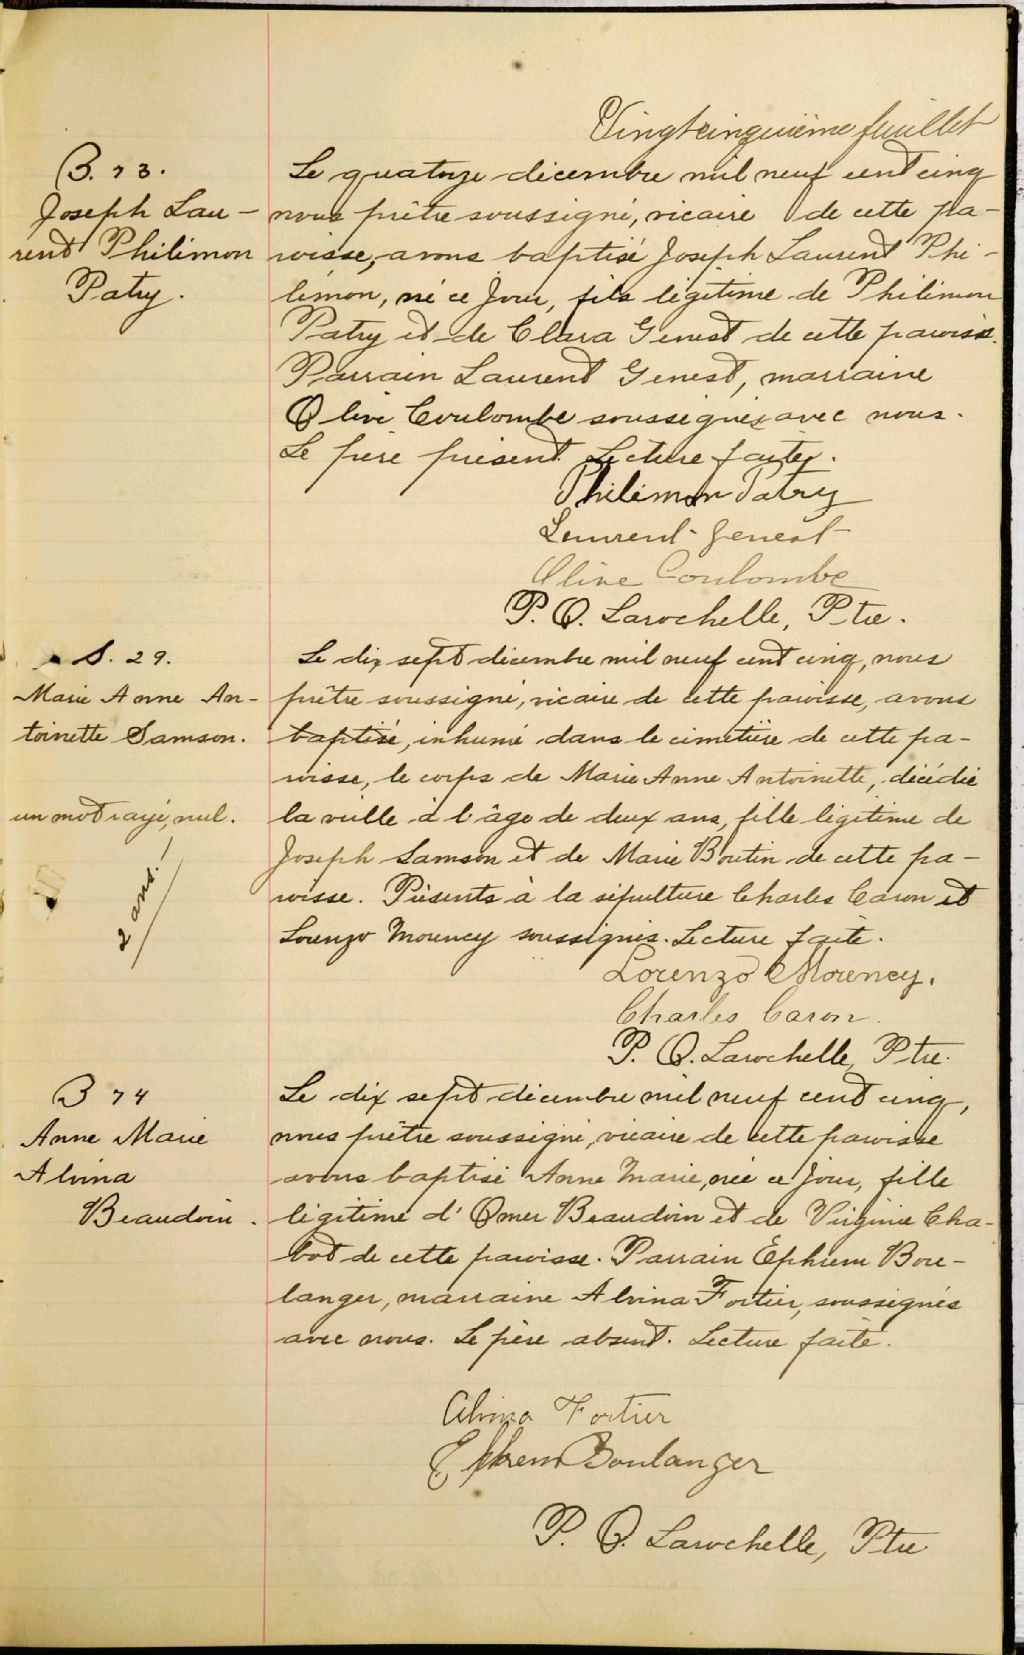 Vingtcinquième feuillet
B. 73.
Joseph Lau-
rent Philémon
Patry.
Le quatorze décembre mil neuf cent cinq
nous prêtre soussigné, vicaire de cette pa-
roisse, avons baptisé Joseph Laurent Phi-
lémon, né ce jour, fils légitime de Philémon
Patry et de Clara Genest de cette paroisse.
Parrain Laurent Genest, marraine
Olive Coulombe soussignés avec nous.
Le père présent. Lecture faite.
Philémon Patry
Laurent Genest
Olive Coulombe
P. O. Larochelle, Ptre.
S. 29.
Marie Anne An-
toinette Samson.
un mot rayé, nul.
2 ans.
Le dix sept décembre mil neuf cent cinq, nous
prêtre soussigné, vicaire de cette paroisse, avons
baptisé, inhumé dans le cimetière de cette pa-
roisse, le corps de Marie Anne Antoinette, décédée
la veille à l'âge de deux ans, fille légitime de
Joseph Samson et de Marie Boutin de cette pa-
roisse. Présents à la sépulture Charles Caron et
Lorenzo Morency soussignés. Lecture faite.
Lorenzo Morency.
Charles Caron.
P. O. Larochelle, Ptre.
B 74
Anne Marie
Alvina
Beaudoin.
Le dix sept décembre mil neuf cent cinq,
nous prêtre soussigné, vicaire de cette paroisse
avons baptisé Anne Marie, née ce jour, fille
légitime d'Omer Beaudoin et de Virginie Cha-
bot de cette paroisse. Parrain Ephrem Bou-
langer, marraine Alvina Fortier, soussignés
avec nous. Le père absent. Lecture faite.
Alvina Fortier
Ephrem Boulanger
P. O. Larochelle, Ptre